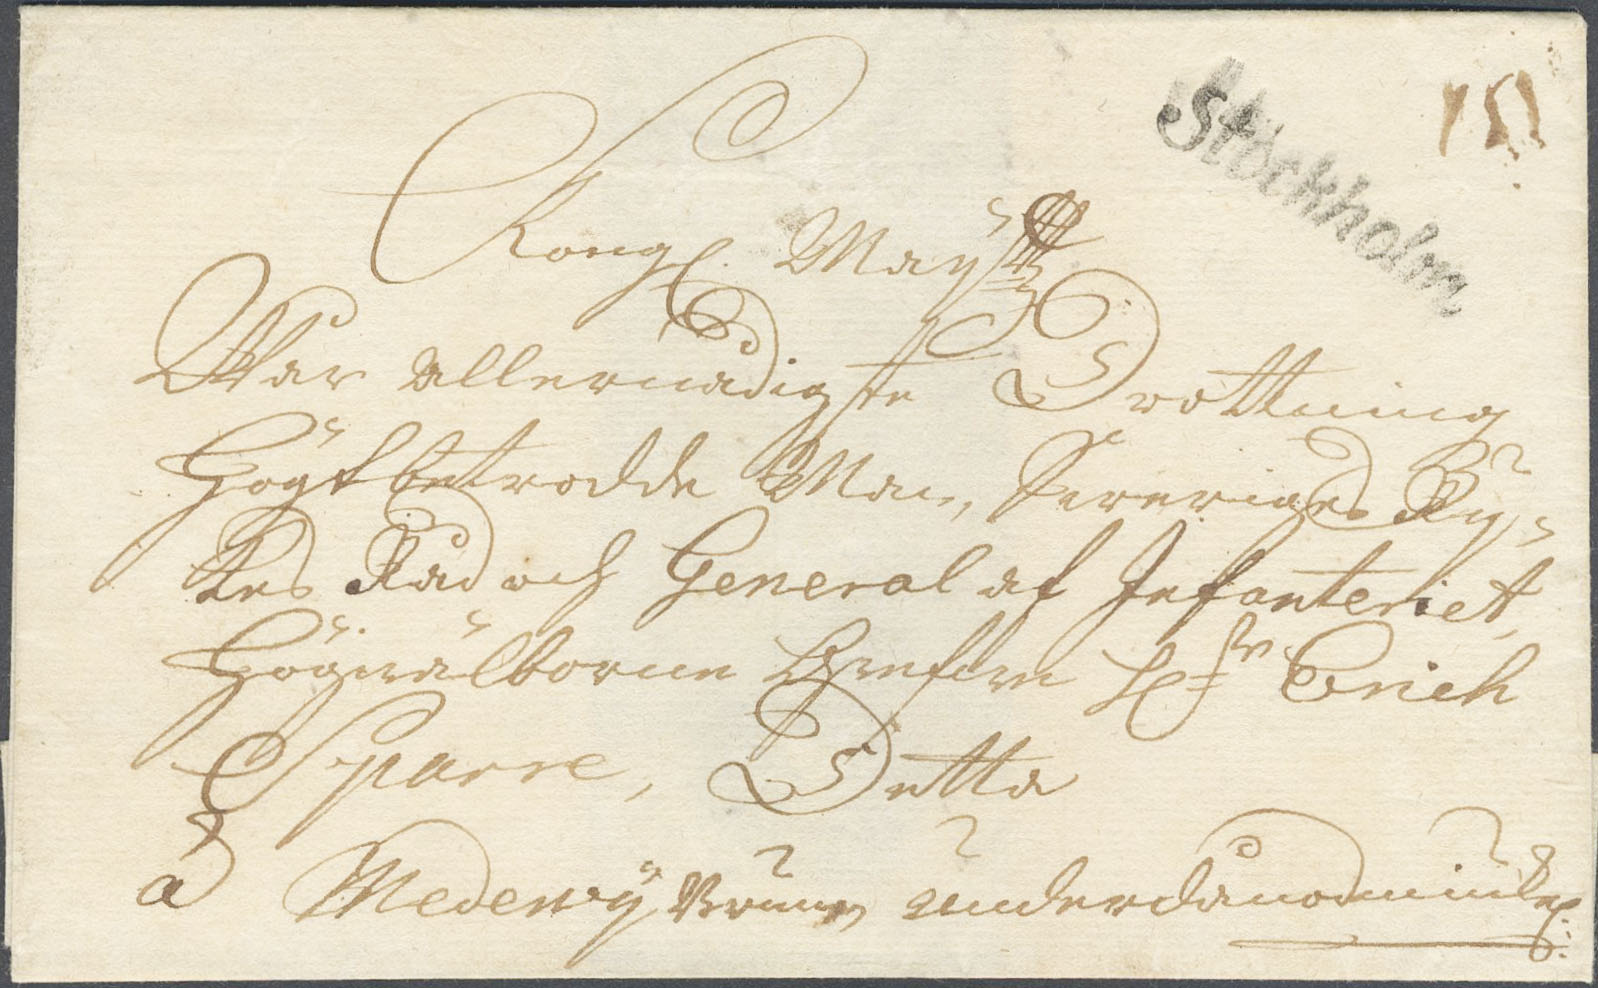 Stockholm
Kongl. May:tz
Wår allernådigste Drottning
Högtbetrodde Man, Sveriges Ry-
kes Råd och General af Infanteriet,
Högwälborne Grefwe H:r Erich
Sparre, Detta
a Medewij Brunn underdånödmiukel: